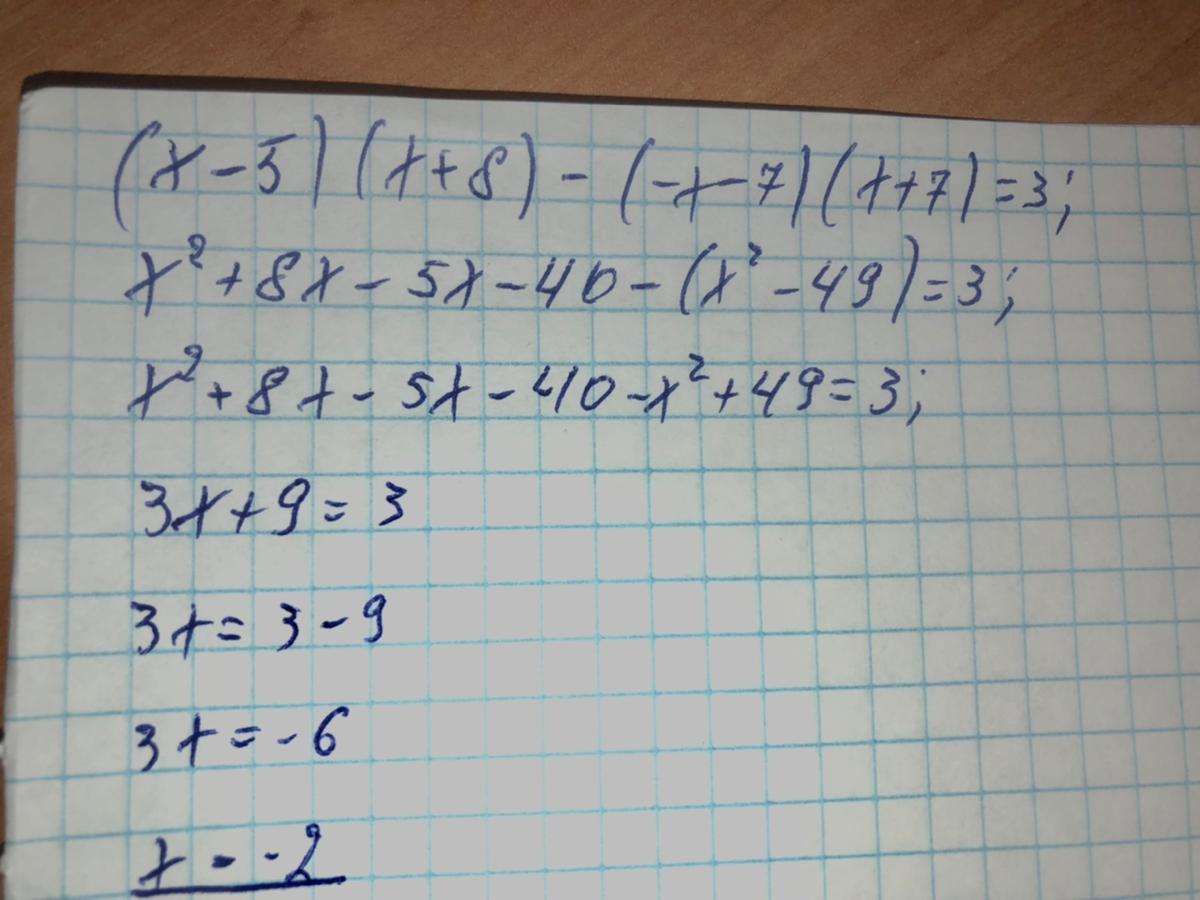 (x-5)(x+8)-(-x-7)(x+7)=3;
x²+8x-5x-40-(x²-49)=3;
x²+8x-5x-40-x²+49=3;
3x+9=3
3x=3-9
3x=-6
x=-2